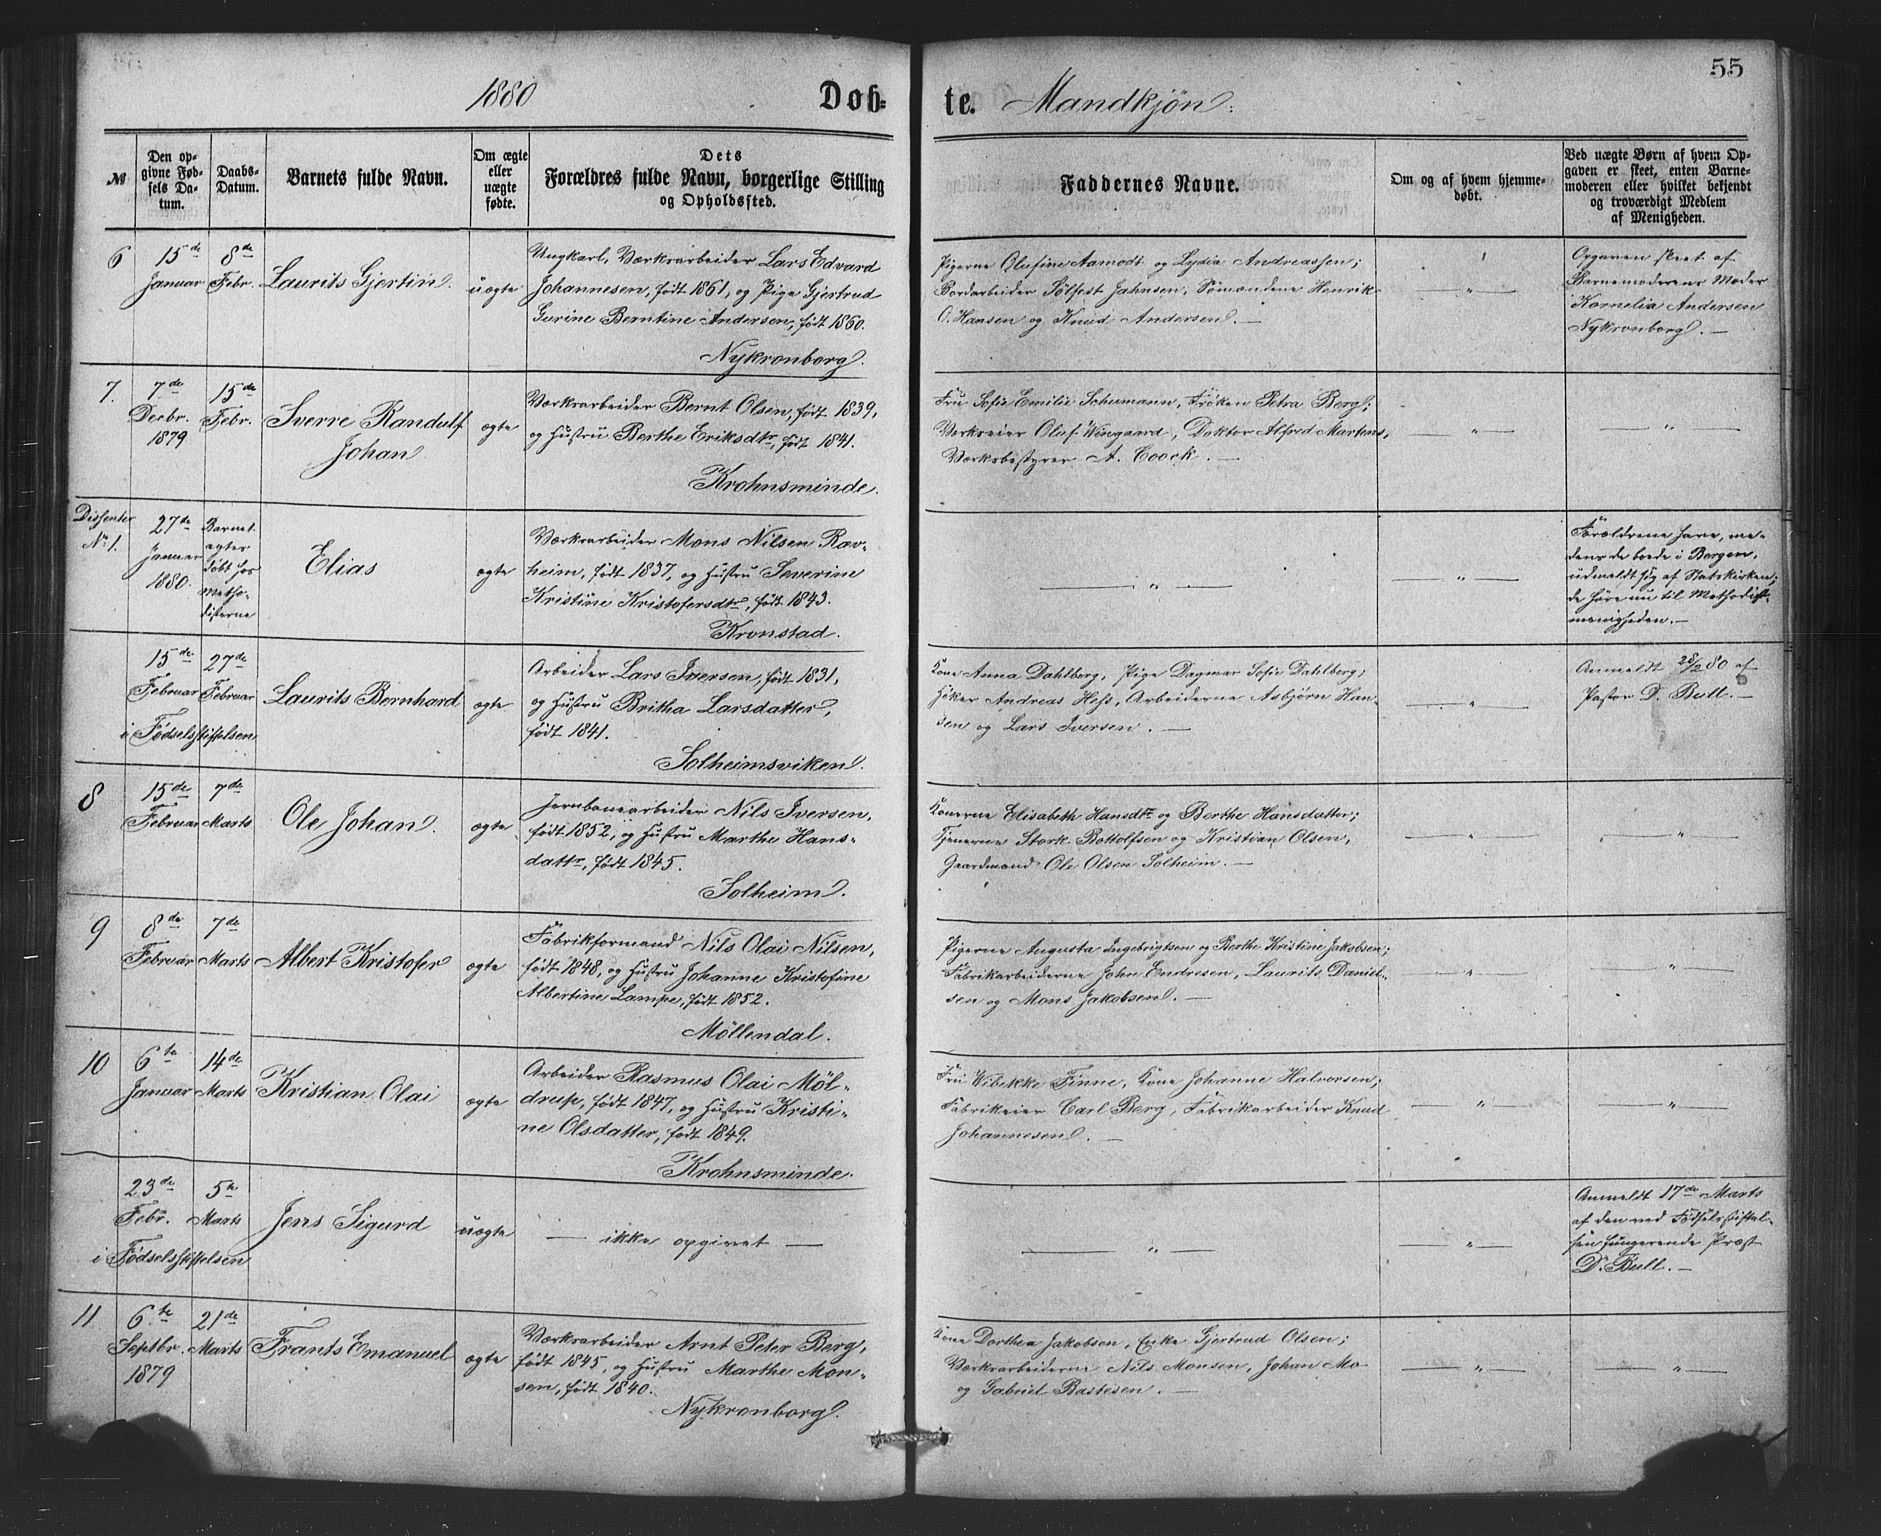 1880
Döbte. Mandkjön.
55
№
Den opgivne Fødsels Datum.
Daabs-Datum.
Barnets fulde Navn.
Om ægte eller uægte fødte.
Dets Forældres fulde Navn, borgerlige Stilling og Opholdssted.
Faddernes Navne.
Om og af hvem hjemmedøbt.
Ved uægte Børn af hvem Opgaven er skeet, enten Barnemoderen eller hvilket bekjendt og troværdigt Medlem af Menigheden.
6
15de Januar
8de Febr.
Laurits Gjertin.
uægte
Ungkarl, Værksarbeider Lars Edvard
Johannesen, født 1861, og Pige Gjertrud
Gurine Berntine Andersen, født 1860.
Nykronborg.
Pigerne Olufine Aamodt og Lydia Andreassen;
Bordarbeider Sölfest Jahnsen, Sömændene Henrik
O. Hansen og Knud Andersen. —
— " —
Opgaven skeet af
Barnemoderens Moder
Kornelia Andersen
Nykronborg. —
7.
7de Decbr. 1879
15de Febr.
Sverre Randulf
Johan
ægte
Værksarbeider Bernt Olsen, født 1839,
og Hustru Berthe Eriksdtr, født 1841.
Krohnsminde.
Fru Sofie Emilie Schumann, Fröken Petra Berg;
Værkseier Oluf Wingaard, Doktor Alfred Martens,
Værksbestyrer A. Coock. —
— " —
— " —
Dissenter
No 1.
27de Januar 1880
Barnet
agtes
døbt hos
Metho-
disterne
Elias
ægte
Værksarbeider Mons Nilsen Rav-
heim, født 1837, og Hustru Severine
Kristine Kristofersdtr, født 1843.
Kronstad.
— " —
— " —
Forældrene have, me-
dens de boede i Bergen,
udmeldt sig af Statskirken;
de høre nu til Methodist-
menigheden. —
15de Februar
27de Februar
i Fødselsstiftelsen
Laurits Bernhard
ægte
Arbeider Lars Iversen, født 1831,
og Hustru Britha Larsdatter,
født 1841.
Solheimsviken.
Kone Anna Dahlberg, Pige Dagmar Sofie Dahlberg;
Höker Andreas Hess, Arbeiderne Asbjörn Han-
sen og Lars Iversen. —
— " —
Anmeldt 28/2 80 af
Pastor D. Bull. —
8
15de Februar
7de Marts
Ole Johan.
ægte
Jernbanearbeider Nils Iversen,
født 1852, og Hustru Marthe Hans-
dattr, født 1845.
Solheim.
Konerne Elisabeth Hansdtr og Berthe Hansdatter;
Tjenerne Stork Bottolfsen og Kristian Olsen,
Gaardmand Ole Olsen Solheim. —
— " —
— " —
9
8de Februar
7de Marts
Albert Kristofer
ægte
Fabrikformand Nils Olai Nilsen,
født 1848, og Hustru Johanne Kristofine
Albertine Lampe, født 1852.
Möllendal.
Pigerne Augusta Ingebrigtsen og Berthe Kristine Jakobsen;
Fabrikarbeiderne John Endresen, Laurits Daniel-
sen og Mons Jakobsen. —
— " —
— " —
10
6te Januar
14de Marts
Kristian Olai
ægte
Arbeider Rasmus Olai Möl-
drup, født 1847, og Hustru Kristi-
ne Olsdatter, født 1849.
Krohnsminde.
Fru Wibekke Finne, Kone Johanne Halvorsen;
Fabrikeier Carl Berg, Fabrikarbeider Knud
Johannesen. —
— " —
— " —
23de Febr.
5te Marts
i Fødselsstiftelsen
Jens Sigurd
uægte
— ikke opgivet —
— " —
— " —
Anmeldt 17de Marts
af den ved Fødselsstiftel-
sen fungerende Præst
D. Bull. —
11
6te Septbr. 1879
21de Marts
Frants Emanuel
ægte
Værksarbeider Arnt Peter Berg,
født 1845, og Hustru Marthe Mon-
sen, født 1840.
Nykronborg.
Kone Dorthea Jakobsen, Enke Gjertrud Olsen;
Værksarbeiderne Nils Monsen, Johan Mo
og Gabriel Bastesen. —
— " —
— " —